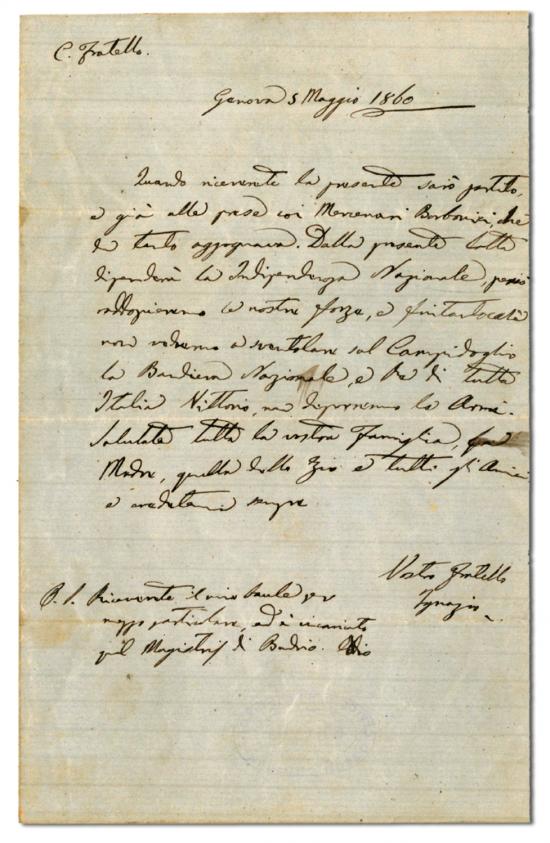 C. Fratello.
Genova 5 Maggio 1860
Quando riceverete la presente sarò partito,
e già alle prese coi Mercenari Borbonici che
tanto agognava. Dalla presente lotta
dipenderà la Indipendenza Nazionale, perciò
raddopieremo le nostre forze, e
non vedremo a sventolare sul Campidoglio
la Bandiera Nazionale, e Re di tutta
Italia Vittorio, non deporremo le Armi.
Salutate tutta la vostra Famiglia,
Madre, quella dello Zio e tutti gli Amici
e credetemi sempre
Vostro Fratello
Ignazio
P. S. Riceverete il mio baule per
mezzo particolare, ed è incaricato
Magistris di Budrio. Addio